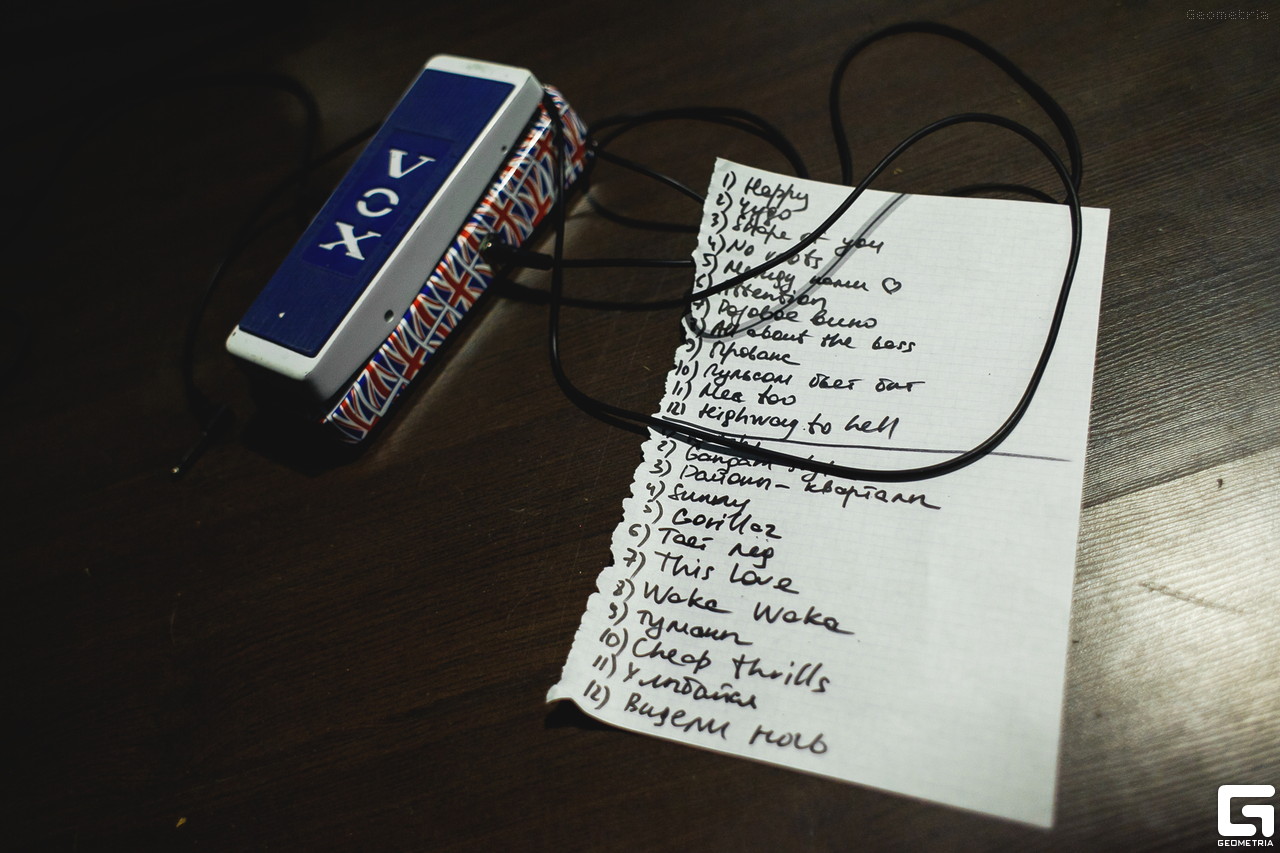 Geometria
VOX
1) Happy
2) Чудо
3) Shape of you
4) No roots
5) Между нами ♡
6) Attention
7) Розовое вино
8) All about the bass
9) Прованс
10) Пульсом бьет бит
11) Mee too
12) Highway to hell
2) Gangam style
3) Районы - кварталы
4) Sunny
5) Gorillaz
6) Тает лёд
7) This Love
8) Waka Waka
9) Туманы
10) Cheap thrills
11) Улыбайся
12) Видели ночь
GEOMETRIA